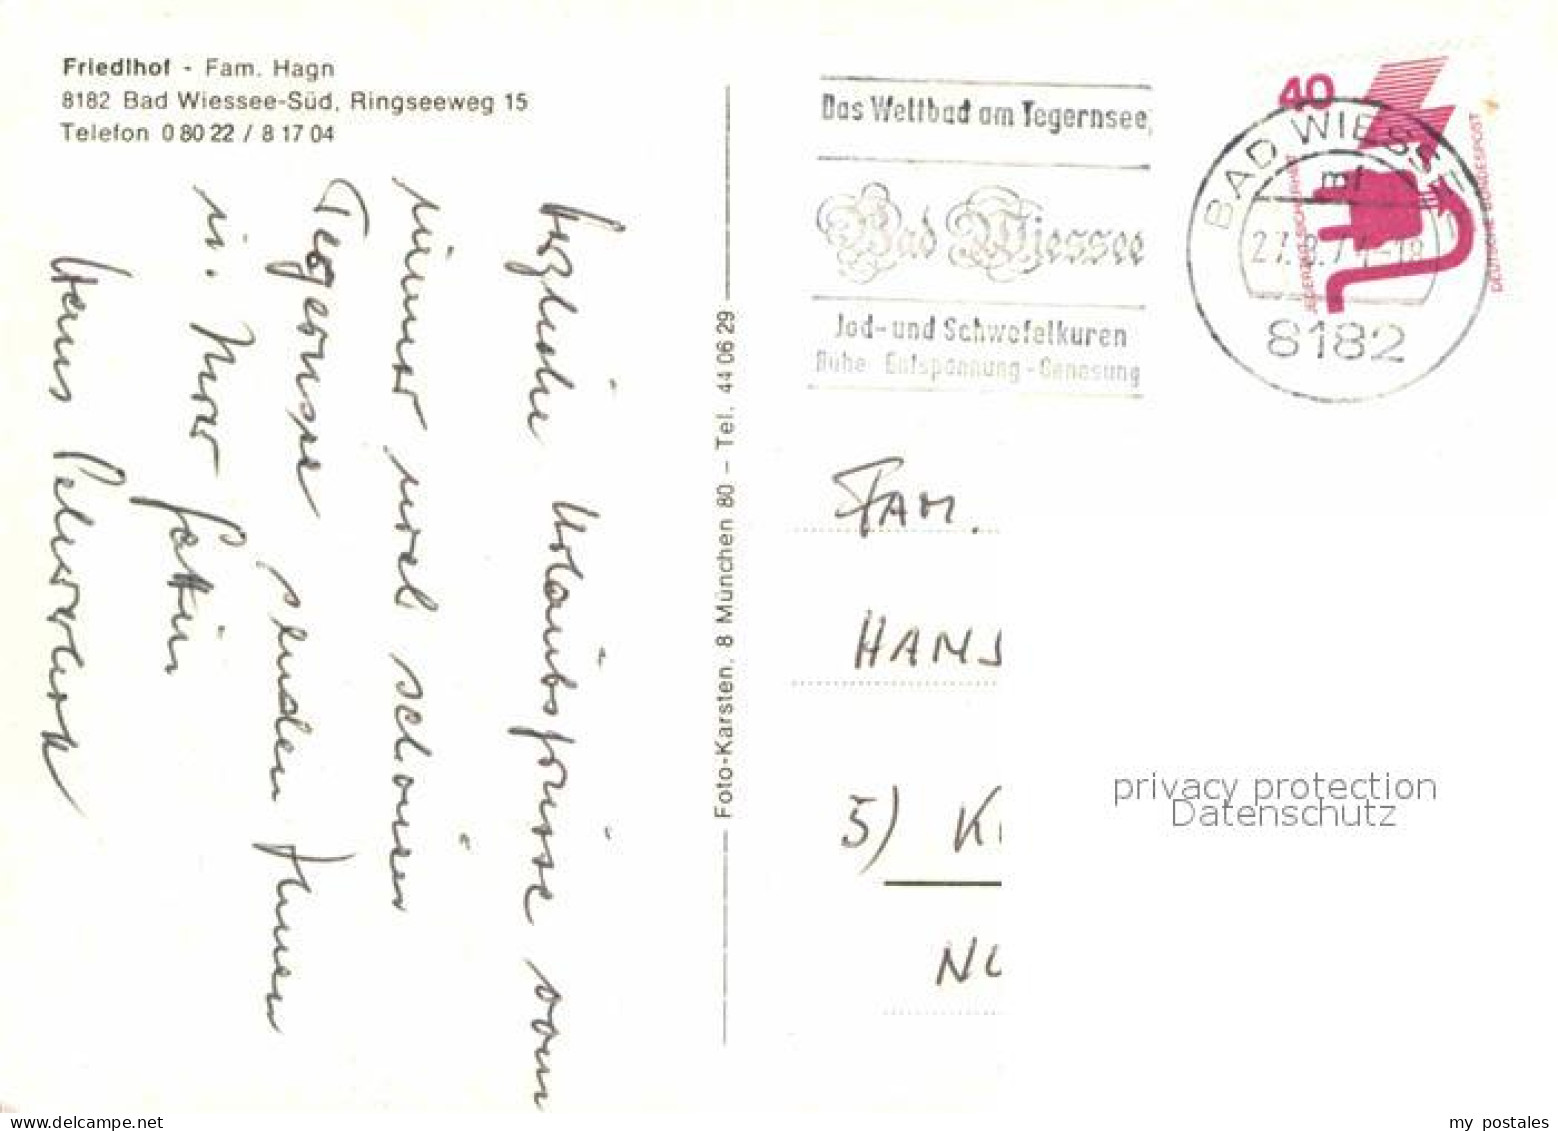 Friedlhof - Fam. Hagn
8182 Bad Wiessee-Süd, Ringseeweg 15
Telefon 0 80 22 / 8 17 04
Herzliche Urlaubsgrüsse vom
immer noch schönen
Tegernsee senden Ihnen
u. Ihrer Gattin
Hans
Foto-Karsten, 8 München 80 – Tel. 44 06 29
Das Weltbad am Tegernsee
Bad Wiessee
Jod- und Schwefelkuren
Ruhe - Entspannung - Genesung
BAD WIESSEE
8182
40
JEDERZEIT SICHERHEIT
DEUTSCHE BUNDESPOST
FAM.
HANS
5) K
privacy protection
Datenschutz
my postales